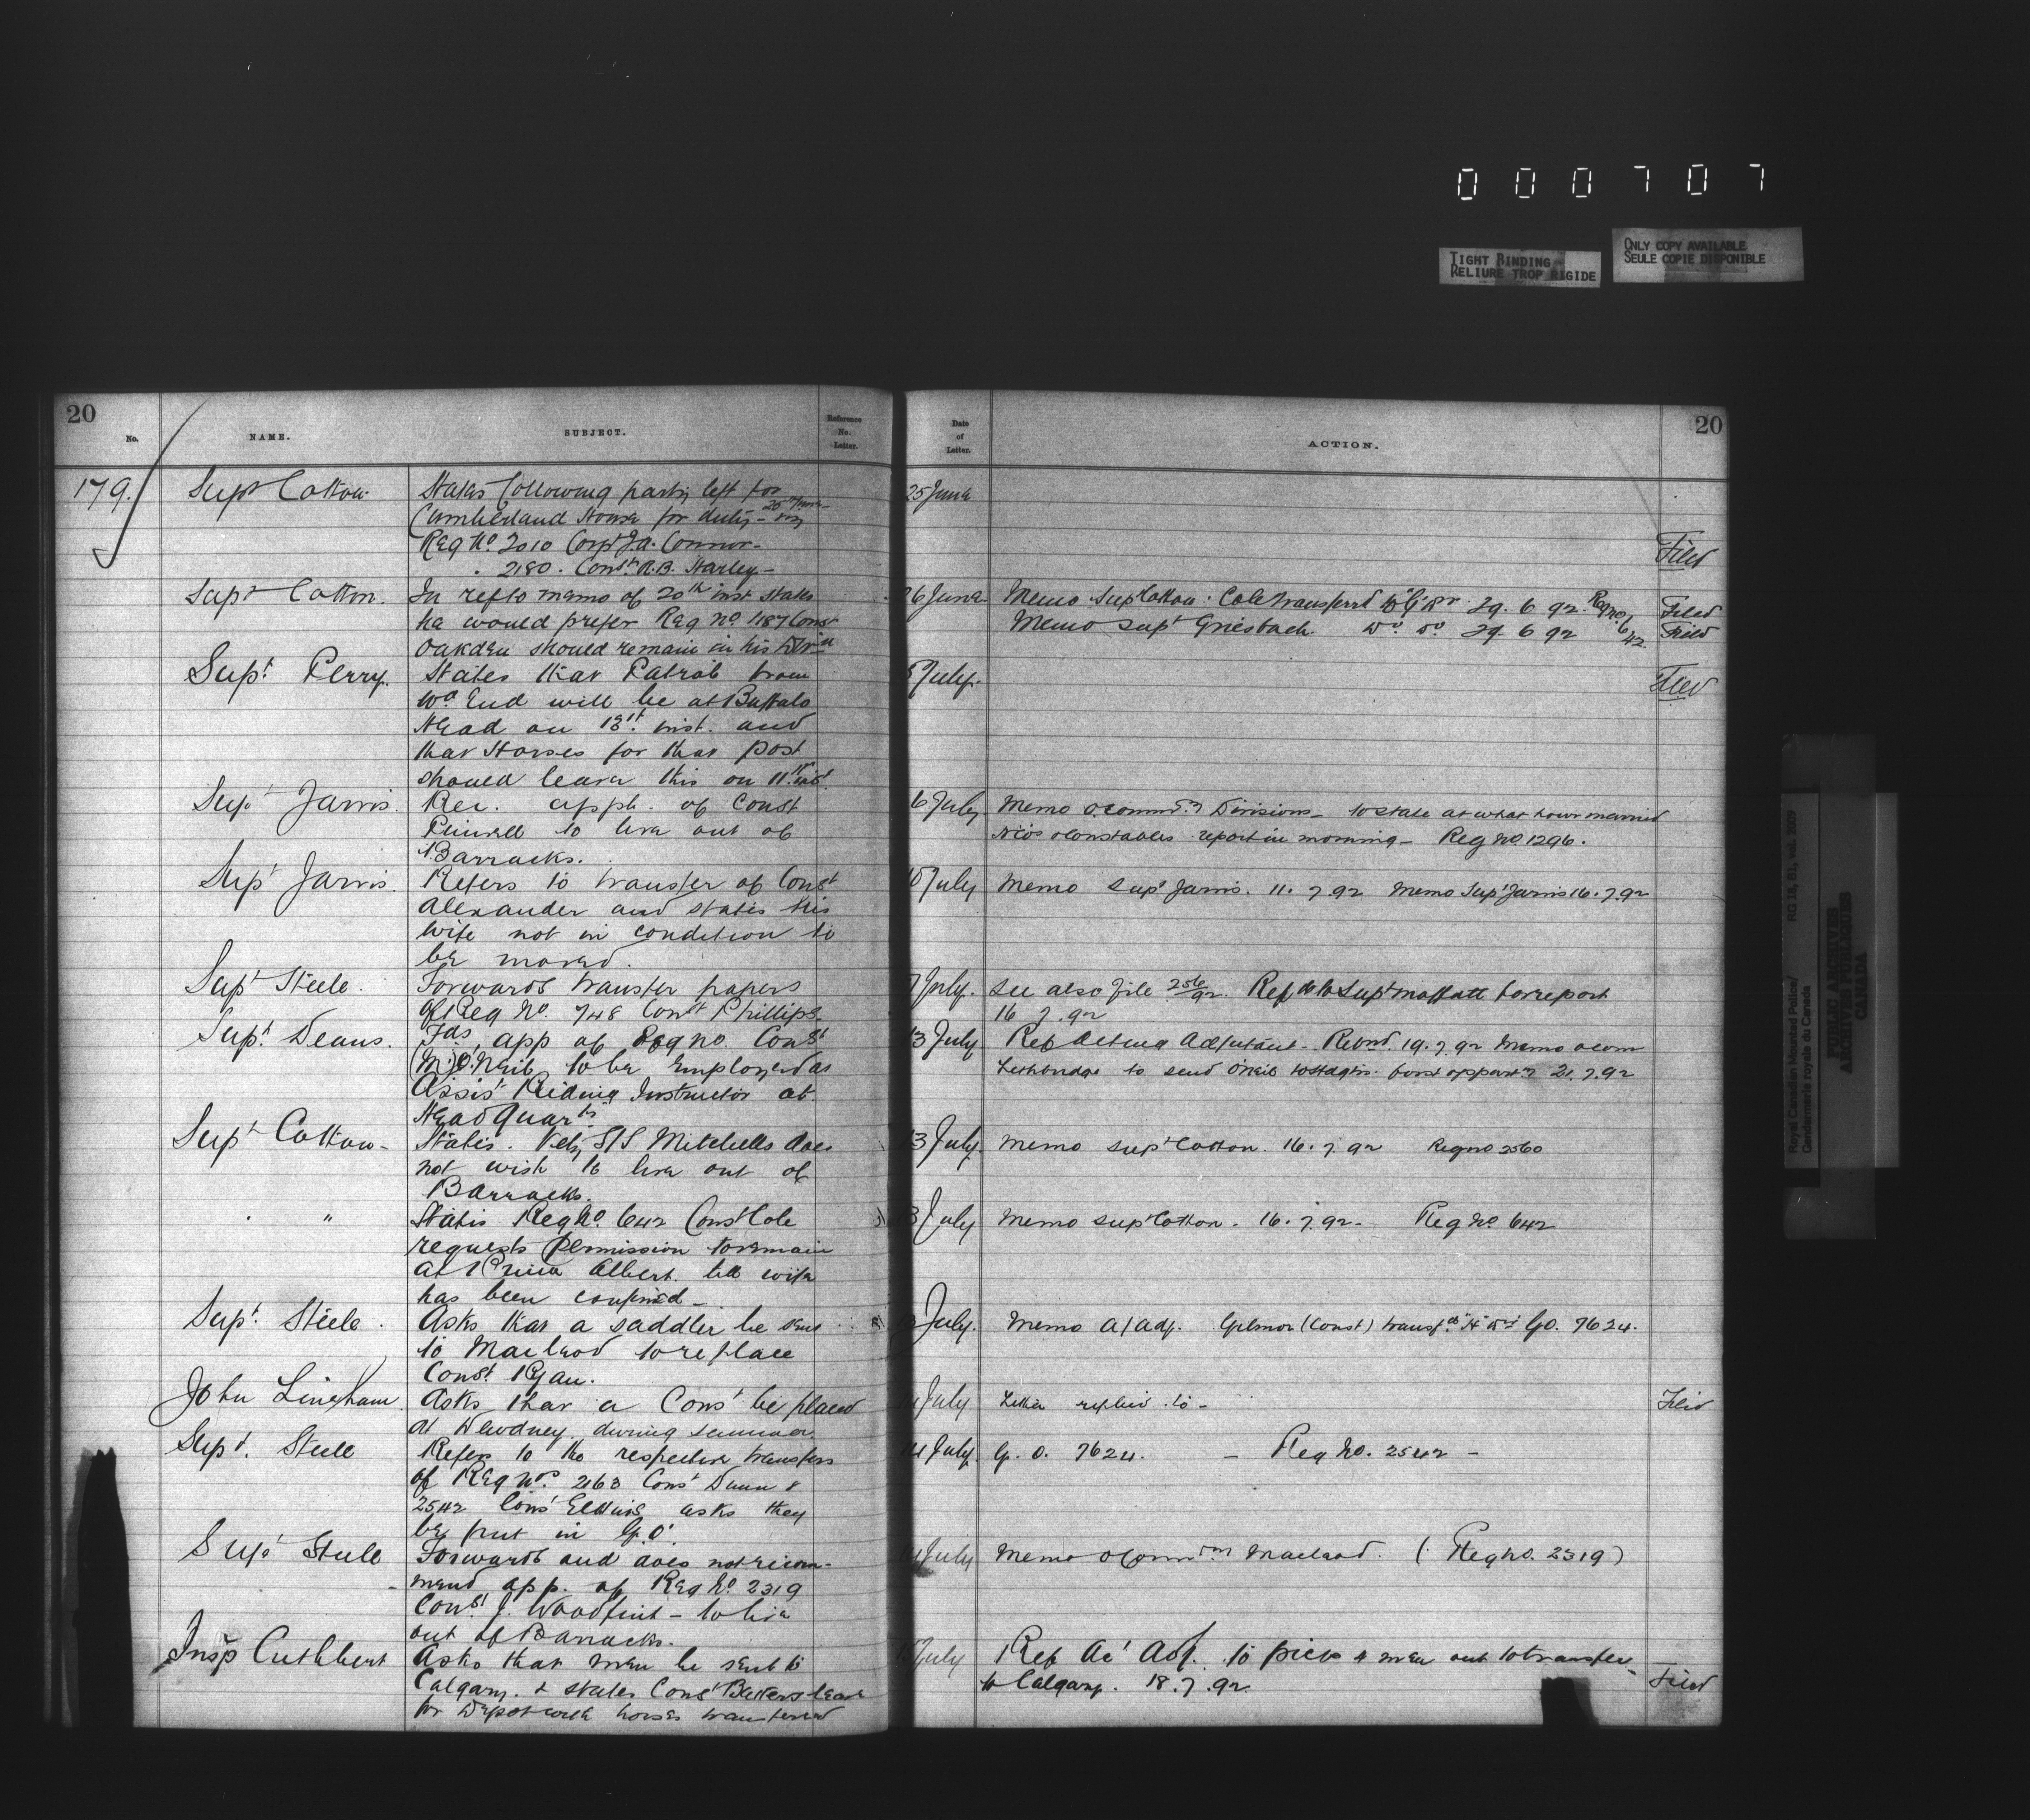 000707
TIGHT BINDING
RELIURE TROP RIGIDE
ONLY COPY AVAILABLE
SEULE COPIE DISPONIBLE
20
No.
NAME.
SUBJECT.
Reference
No.
Letter.
Date
of
Letter.
ACTION.
20
179.
Supt Cotton
States following party left for
Cumberland House for duty - 25th June viz
Reg No. 2010 Corpl J.A. Connor -
" 2180 . Const. R.B. Starley -
25 June
Filed
Supt Cotton.
In ref to memo of 20th inst states
he would prefer Reg No 1187 Const
Oakden should remain in his Divin
26 June
Memo Supt Cotton : Cole transferrd to "G" Dn 29. 6 92. Reg no 642
Filed
Memo Supt Griesbach. Do Do 29. 6 92
Filed
Supt. Perry.
States that Patrol from
Wd End will be at Buffalo
Head on 13th. inst. and
that Horses for that post
should leave this on 11th inst.
July.
Filed
Supt Jarvis.
Rec. appln. of Const
to live out of
Barracks.
6 July
Memo O. Commdg Divisions - to state at what hour married
NCOs & Constables report in morning - Reg No. 1296.
Supt Jarvis.
Refers to transfer of Const
Alexander and states his
wife not in condition to
be moved.
10 July
Memo Supt Jarvis. 11. 7.92 Memo Supt Jarvis 16. 7.92
Supt Steele.
Forwards transfer papers
of Reg No. 748 Const Phillips.
7 July.
See also file 256/92. Refd to Supt Moffatt for report
16 7. 92
Supt. Deane.
Fds app of Reg no. Const
(M.) O'Neil to be employed as
Assist Riding Instructor at
Head Quarts.
13 July
Ref Acting Adjutant - Retnd. 19. 7. 92 Memo O Com
Lethbridge to send O'Neil to Hdqrs. first opporty 21. 7. 92
Supt Cotton -
States. Vety S/S Mitchells does
not wish to live out of
Barracks.
13 July.
Memo Supt Cotton. 16. 7. 92 Reg no 2560
"
States Reg No. 642 Const Cole
requests permission to remain
at Prince Albert. till wife
has been confined -
13 July
Memo Supt Cotton. 16. 7. 92 - Reg No 642
Supt. Steele.
Asks that a saddler be sent
to Macleod to replace
Const. Ryan.
July.
Memo A/Adj. Gilmor (Const) transfd to "H" Dn G.O. 7624.
John Lineham.
Asks that a Const be placed
at Dewdney. during summer
July
Letter replied to -
Filed
Supt. Steele
Refers to the respective transfers
of Reg Nos 2163 Const Dunn &
2542 Const asks they
be put in G.O.
14 July.
G. O. 7624. - Reg No. 2542 -
Supt Steele
Forwards and does not recom-
mend app. of Reg No. 2319
Const J. Woodfint - to live
out of Barracks.
July
Memo O Commdg Macleod. (Reg No. 2319)
Insp Cuthbert
Asks that men be sent to
Calgary. & states Const leave
for Depot with horses transferred
July
Ref Ac' Adj. to pick 4 men out to transfer
to Calgary. 18. 7. 92
Filed
Royal Canadian Mounted Police/
Gendarmerie royale du Canada
RG 18, B1, vol. 2009
PUBLIC ARCHIVES
ARCHIVES PUBLIQUES
CANADA